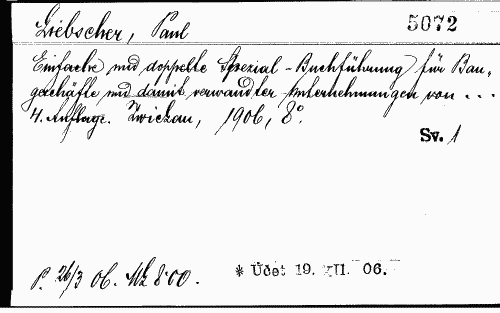 Liebscher, Paul 5072
Einfache und doppelte Spezial-Buchführung für Bau-
geschäfte und damit verwandter Unternehmungen von ...
4. Auflage. Zwickau, 1906, 8°.
Sv. 1
P. 26/3 06. Mk 8.00.
* Účet 19. XII. 06.